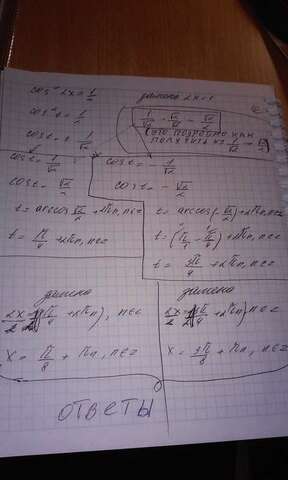 cos² 2x = 1/2
замена 2x = t
cos² t = 1/2
1/√2 · √2/√2 = √2/2
cos t = ± 1/√2
(это подробно как получить из 1/√2 → √2/2)
cos t = 1/√2
cos t = - 1/√2
cos t = √2/2
cos t = - √2/2
t = arccos √2/2 + 2πn, n∈z
t = arccos(-√2/2) + 2πn, n∈z
t = π/4 + 2πn, n∈z
t = (π/1 - π/4) + 2πn, n∈z
t = 3π/4 + 2πn, n∈z
замена
замена
2x/2 = (π/4 + 2πn), n∈z
2x/2 = 3π/4 + 2πn, n∈z
x = π/8 + πn, n∈z
x = 3π/8 + πn, n∈z
ответы